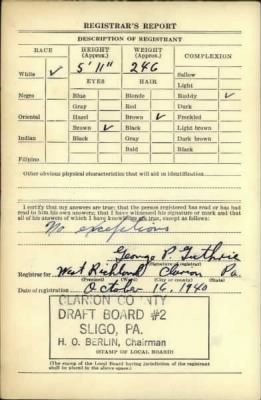 REGISTRAR'S REPORT
DESCRIPTION OF REGISTRANT
RACE HEIGHT (Approx.) WEIGHT (Approx.) COMPLEXION
5' 11" 246
White ✓ Sallow
EYES HAIR Light
Negro Blue Blonde Ruddy ✓
Gray Red Dark
Oriental Hazel Brown ✓ Freckled
Brown ✓ Black Light brown
Indian Black Gray Dark brown
Bald Black
Filipino
Other obvious physical characteristics that will aid in identification
I certify that my answers are true; that the person registered has read or has had
read to him his own answers; that I have witnessed his signature or mark and that
all of his answers of which I have knowledge are true, except as follows:
No exceptions
George P. Guthrie
(Signature of registrar)
Registrar for West Richland Clarion Pa.
(Precinct) (Ward) (City or county) (State)
Date of registration October 16, 1940
CLARION COUNTY
DRAFT BOARD #2
SLIGO, PA.
H. O. BERLIN, Chairman
(STAMP OF LOCAL BOARD)
(The stamp of the Local Board having jurisdiction of the registrant
shall be placed in the above space.)